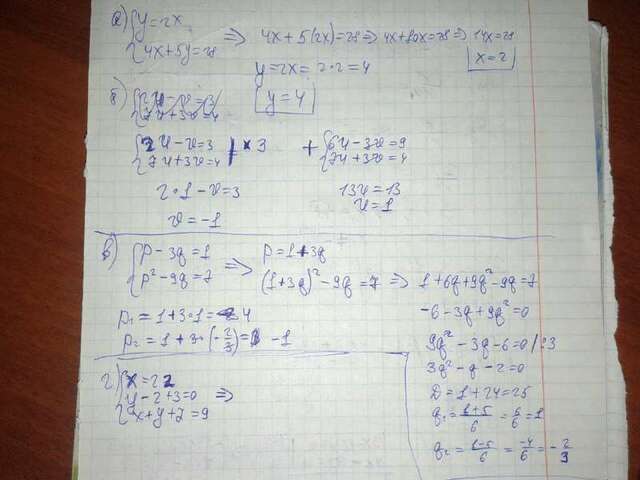 а) {y=2x
{4x+5y=28 => 4x+5(2x)=28 => 4x+10x=28 => 14x=28
x=2
y=2x=2·2=4
y=4
б)
{2u-v=3 | ×3
{7u+3v=4
+ {6u-3v=9
{7u+3v=4
13u=13
u=1
2·1-v=3
v=-1
в) {p-3q=1
{p²-9q=7 => p=1+3q
(1+3q)²-9q=7 => 1+6q+9q²-9q=7
-6-3q+9q²=0
9q²-3q-6=0 /:3
3q²-q-2=0
D=1+24=25
q₁=1+5/6=6/6=1
q₂=1-5/6=-4/6=-2/3
p₁=1+3·1=4
p₂=1+3·(-2/3)=-1
г) {x=2z
{y-z+3=0 =>
{x+y+z=9